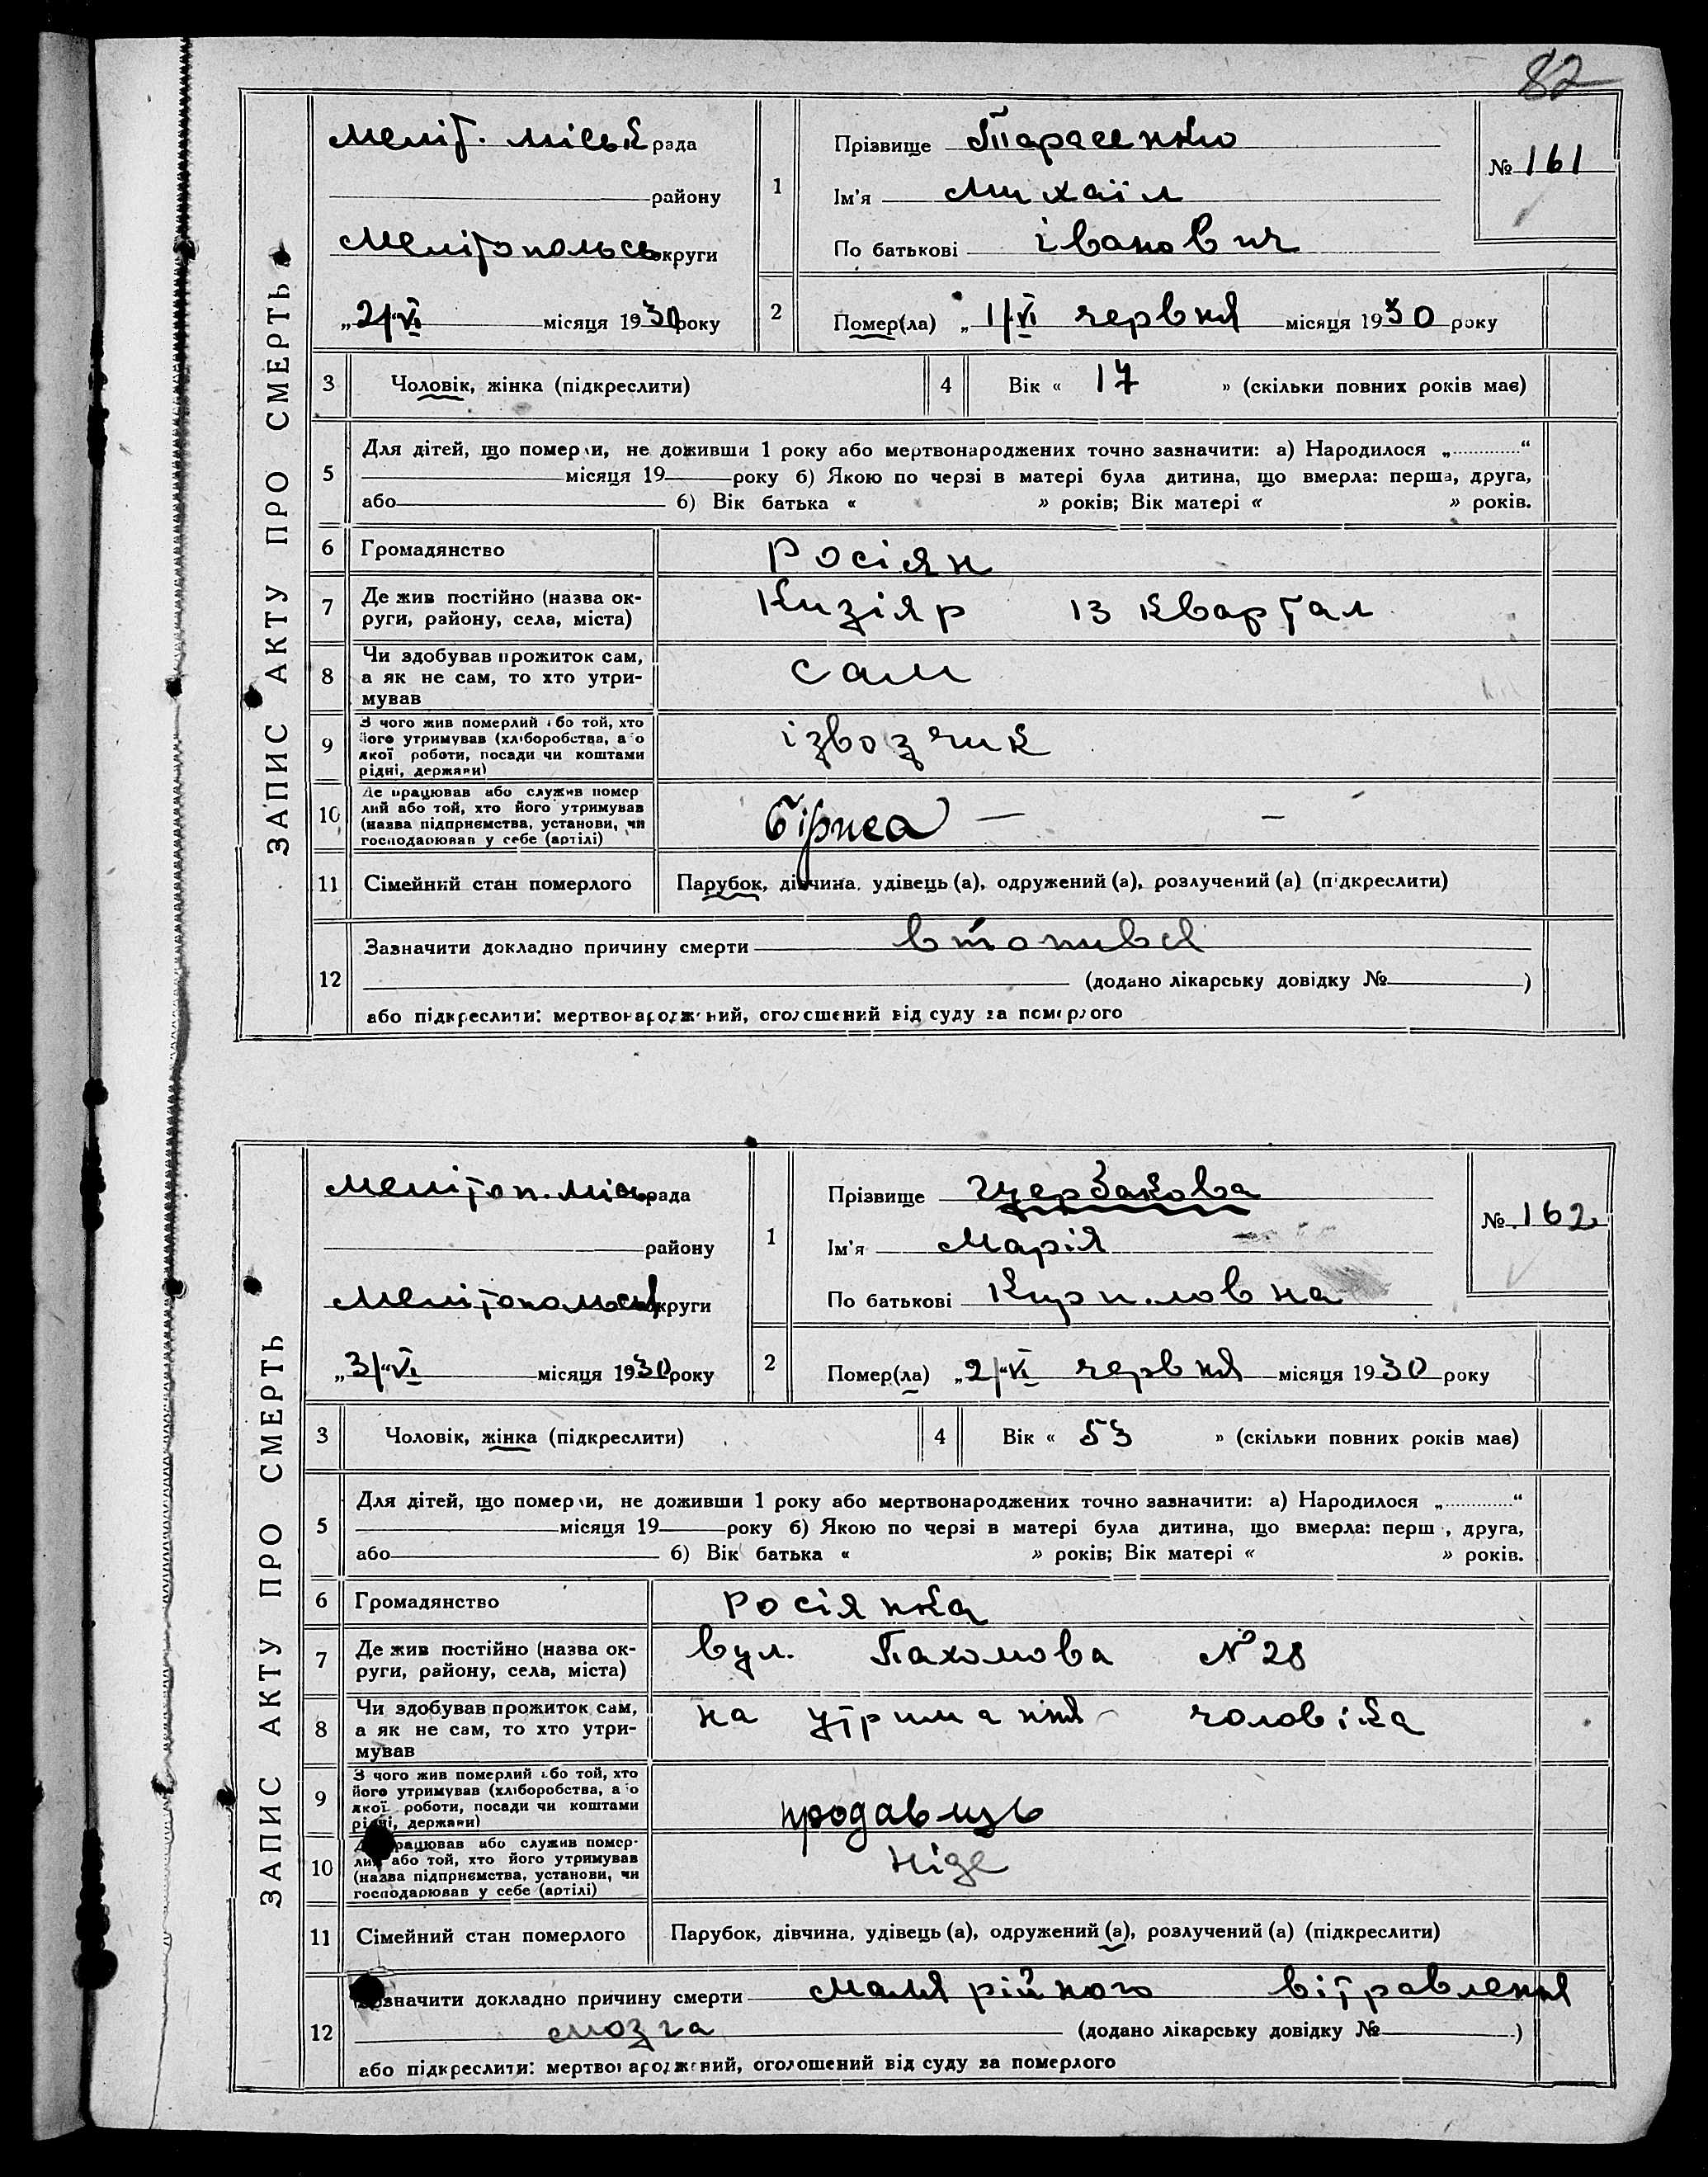 82
ЗАПИС АКТУ ПРО СМЕРТЬ
Меліт. міськ рада
району
Мелітопольсь округи
„2/VI місяця 1930 року
1
Прізвище Тарасенко
Ім'я Михаіл
По батькові іванович
№ 161
2
Помер(ла) „1/VI червня місяця 1930 року
3 Чоловік, жінка (підкреслити)
4 Вік « 17 » (скільки повних років має)
5
Для дітей, що померли, не доживши 1 року або мертвонароджених точно зазначити: а) Народилося „............“
місяця 19 року б) Якою по черзі в матері була дитина, що вмерла: перша, друга,
або б) Вік батька « » років; Вік матері « » років.
6 Громадянство Росіян
7 Де жив постійно (назва ок-
руги, району, села, міста) Кизіяр 13 квартал
8 Чи здобував прожиток сам,
а як не сам, то хто утри-
мував сам
9 З чого жив померлий або той, хто
його утримував (хліборобства, або
якої роботи, посади чи коштами
рідні, держави) ізвозчик
10 Де працював або служив помер
лий або той, хто його утримував
(назва підприємства, установи, чи
господарював у себе (артілі) біржа — —
11 Сімейний стан померлого Парубок, дівчина, удівець (а), одружений (а), розлучений (а) (підкреслити)
12 Зазначити докладно причину смерти втопився
(додано лікарську довідку № )
або підкреслити: мертвонароджений, оголошений від суду за померлого
ЗАПИС АКТУ ПРО СМЕРТЬ
Мелітоп. місь рада
району
Мелітопольськ округи
„3/VI місяця 1930 року
1
Прізвище Щербакова
Ім'я Марія
По батькові Кириловна
№ 162
2
Помер(ла) „2/VI червня місяця 1930 року
3 Чоловік, жінка (підкреслити)
4 Вік « 53 » (скільки повних років має)
5
Для дітей, що померли, не доживши 1 року або мертвонароджених точно зазначити: а) Народилося „............“
місяця 19 року б) Якою по черзі в матері була дитина, що вмерла: перш , друга,
або б) Вік батька « » років; Вік матері « » років.
6 Громадянство росіянка
7 Де жив постійно (назва ок-
руги, району, села, міста) вул. Пахомова № 28
8 Чи здобував прожиток сам,
а як не сам, то хто утри-
мував на утримання чоловіка
9 З чого жив померлий або той, хто
його утримував (хліборобства, або
якої роботи, посади чи коштами
рідні, держави) продавець
10 Де працював або служив помер-
лий або той, хто його утримував
(назва підприємства, установи, чи
господарював у себе (артілі) ніде
11 Сімейний стан померлого Парубок, дівчина, удівець (а), одружений (а), розлучений (а) (підкреслити)
12 Зазначити докладно причину смерти Малярійного вітравлення
мозга (додано лікарську довідку № )
або підкреслити: мертвонароджений, оголошений від суду за померлого